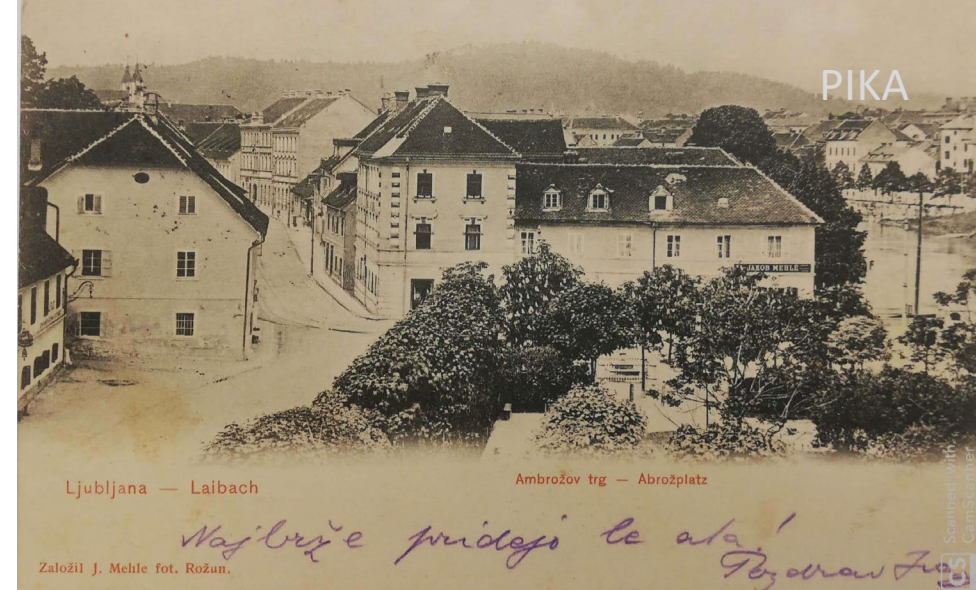 PIKA
JAKOB MEHLE
Ljubljana — Laibach
Ambrožov trg — Abrožplatz
Najbrže pridejo le
Pozdrav
Založil J. Mehle fot. Rožun.
CS Scanned with
CamScanner